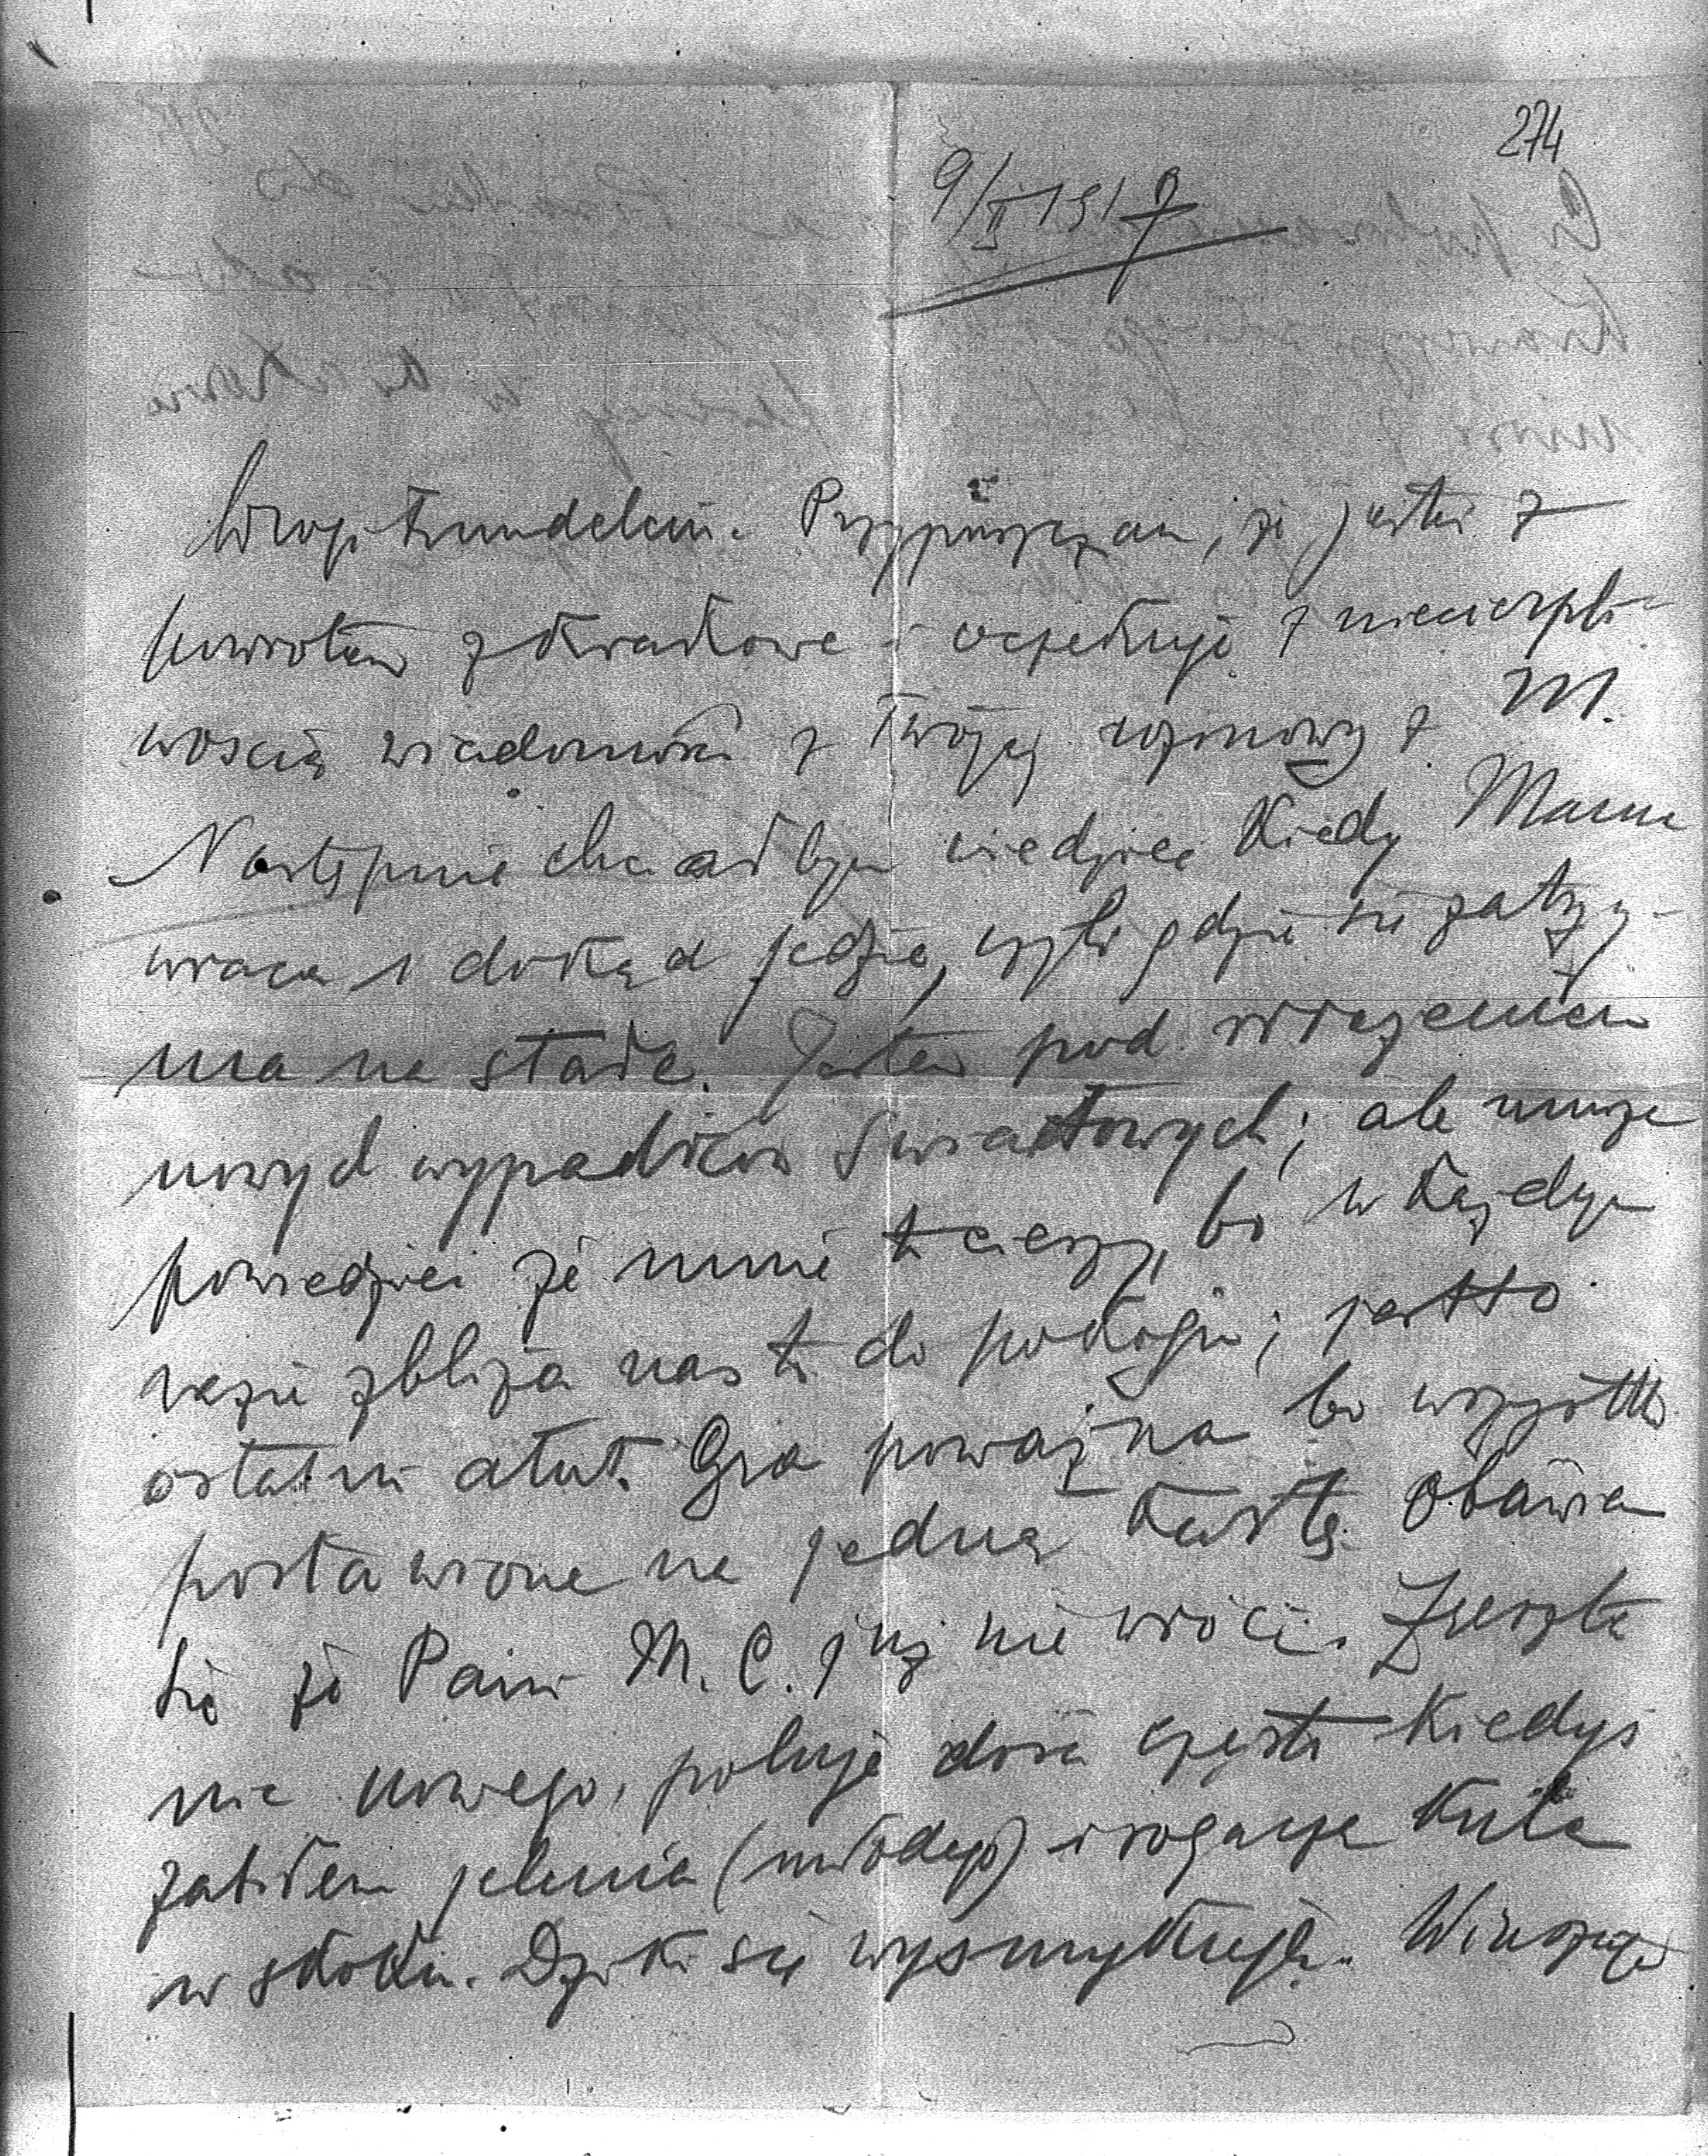 274
9/II 1917
Drogi Przypuszczam, że jesteś z
powrotem z Krakowa i oczekuję z niecierpli-
wością wiadomości z Twojej rozmowy z M.
Następnie chciałbym wiedzieć kiedy Mama
wraca i dokąd jedzie, czyli gdzie się zatrzy-
ma na stałe. Jestem pod wrażeniem
nowych wypadków światowych; ale muszę
powiedzieć że mnie to cieszy, bo w każdym
razie zbliża nas to do pokoju; jest to
ostatni atut. Gra poważna bo wszystko
postawione na jedną kartę. Obawiam
się że Pani M. C. już nie wróci. Zresztą
nic nowego, poluję dość często kiedyś
zabiłem jelenia (młodego) i rogacza kulą
w skoku. Dziki się wysmykują. Winszuję